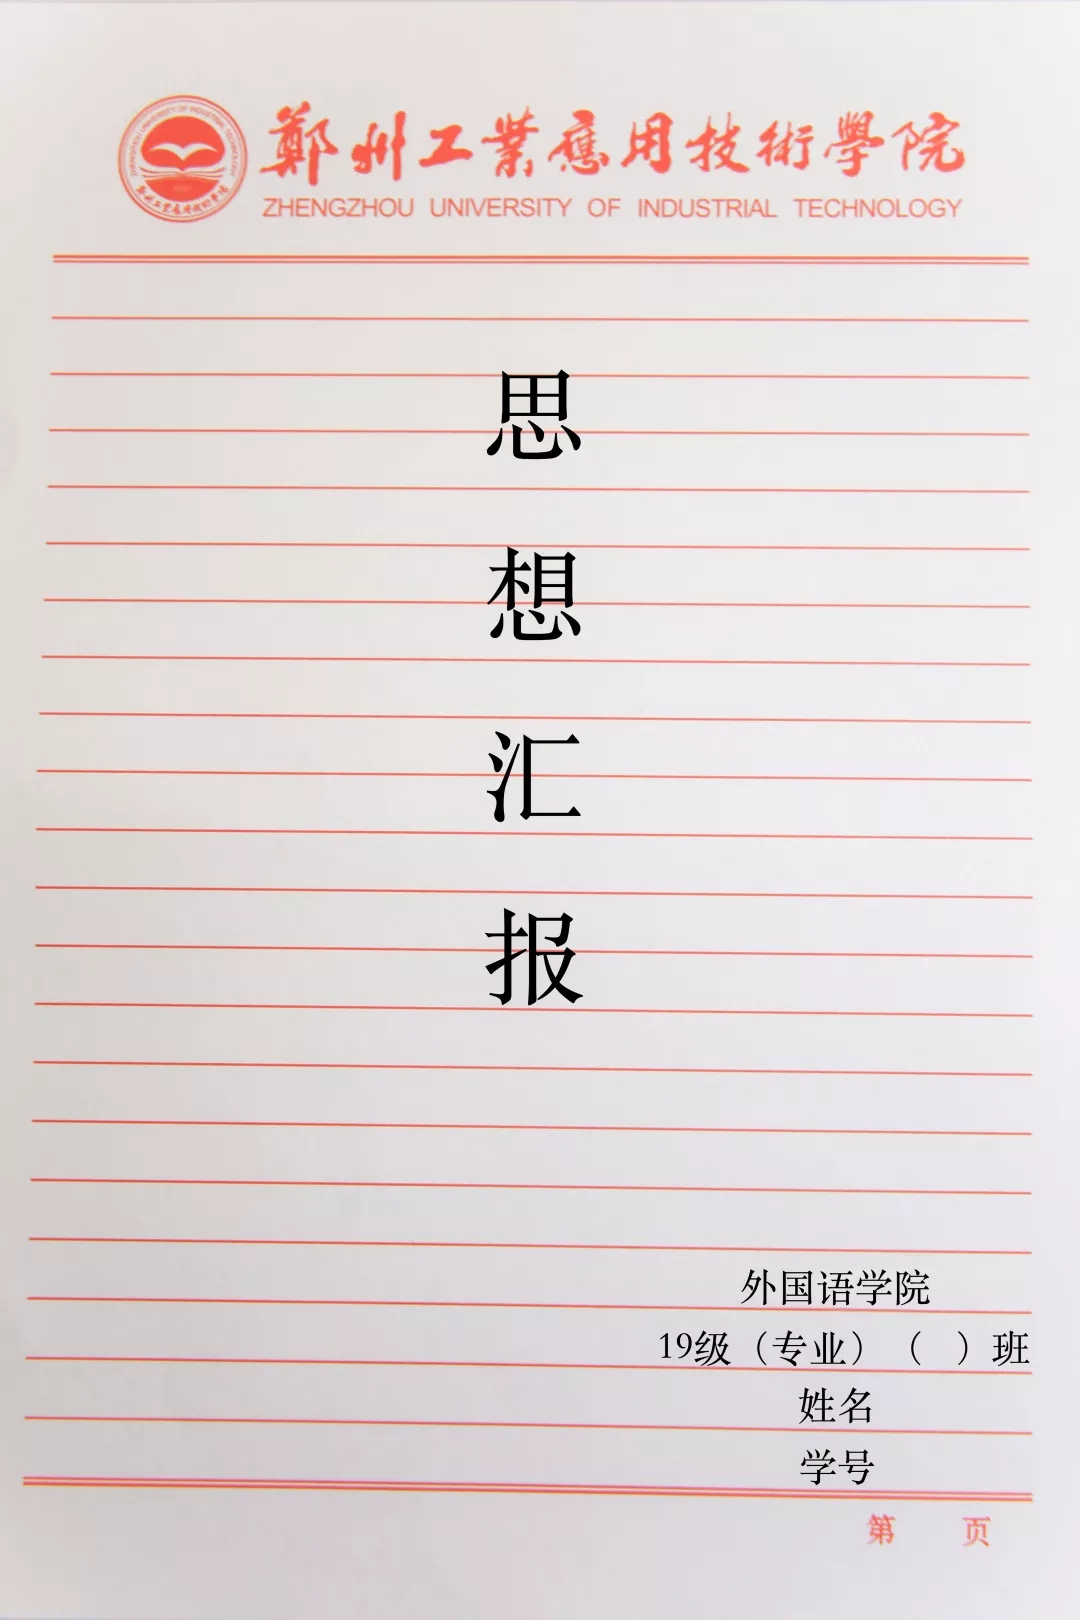 鄭州工業應用技術學院
ZHENGZHOU UNIVERSITY OF INDUSTRIAL TECHNOLOGY
思
想
汇
报
外国语学院
19级（专业）（　）班
姓名
学号
第　页